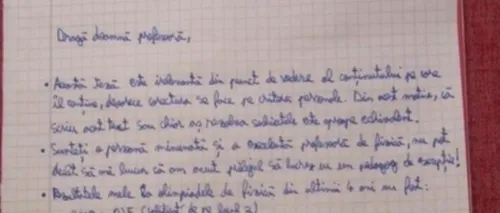 Dragă doamnă profesoară,
• Această teză este irelevantă din punct de vedere al conținutului pe care
îl conține, deoarece corectura se face pe criterii personale. Din acest motiv, că
scriu acest text sau chiar aș rezolva subiectele este aproape echivalent.
• Sunteți o persoană minunată și o excelentă profesoară de fizică, nu pot
decât să mă bucur că am avut privilegiul să lucrez cu un pedagog de excepție!
• Rezultatele mele la olimpiadele de fizică din ultimii 4 ani au fost: